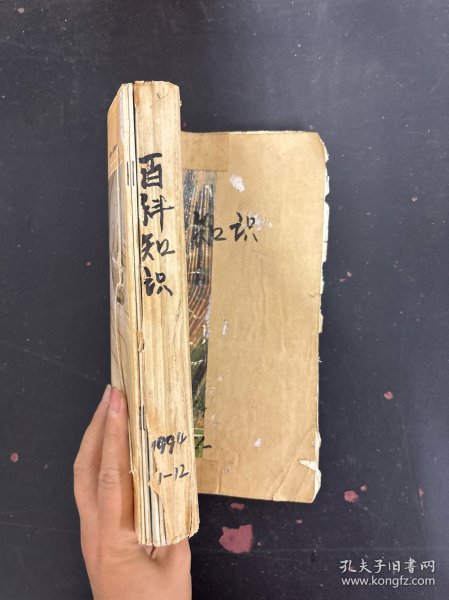 百科知识
1994
1-12
知识
孔夫子旧书网
www.kongfz.com